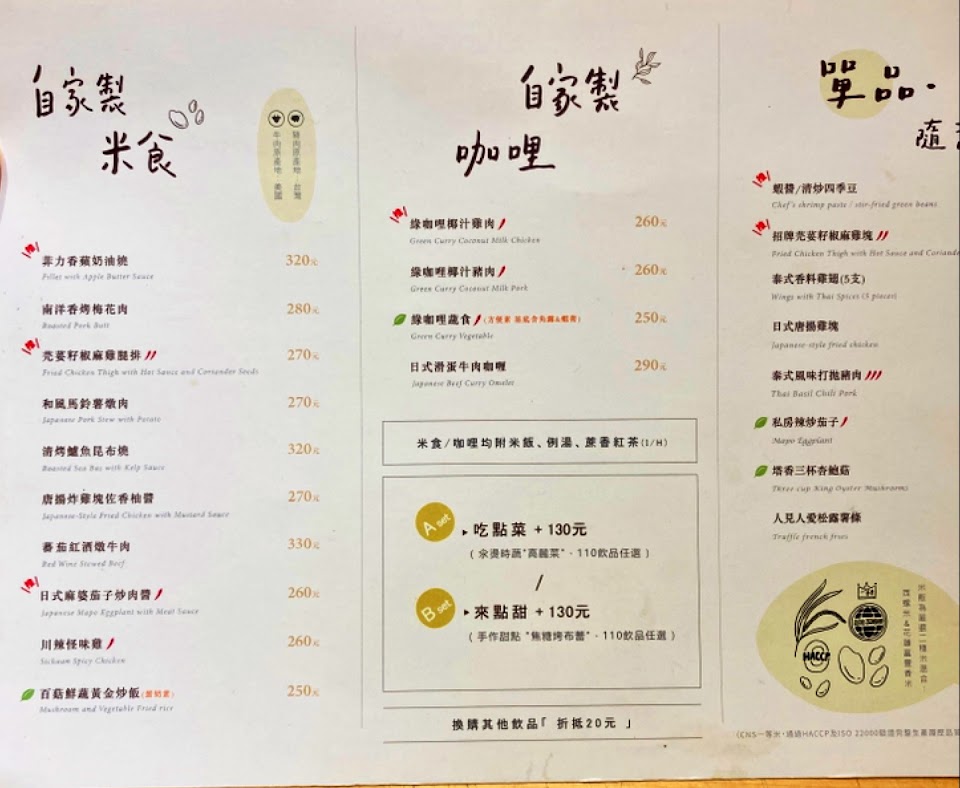 自家製
米食
牛肉原產地:美國
豬肉原產地:台灣
推
菲力香蘋奶油燒 320元
Fillet with Apple Butter Sauce
南洋香烤梅花肉 280元
Roasted Pork Butt
推
芫荽籽椒麻雞腿排 270元
Fried Chicken Thigh with Hot Sauce and Coriander Seeds
和風馬鈴薯燉肉 270元
Japanese Pork Stew with Potato
清烤鱸魚昆布燒 320元
Roasted Sea Bas with Kelp Sauce
唐揚炸雞塊佐香柚醬 270元
Japanese-Style Fried Chicken with Mustard Sauce
蕃茄紅酒燉牛肉 330元
Red Wine Stewed Beef
推
日式麻婆茄子炒肉醬 260元
Japanese Mapo Eggplant with Meat Sauce
川辣怪味雞 260元
Sichuan Spicy Chicken
百菇鮮蔬黃金炒飯(蛋奶素) 250元
Mushroom and Vegetable Fried rice
自家製
咖哩
推
綠咖哩椰汁雞肉 260元
Green Curry Coconut Milk Chicken
綠咖哩椰汁豬肉 260元
Green Curry Coconut Milk Pork
綠咖哩蔬食 250元
Green Curry Vegetable
日式滑蛋牛肉咖喱 290元
Japanese Beef Curry Omelet
米食/咖哩均附米飯、例湯、蔗香紅茶(1/H)
A set
吃點菜 + 130元
( 汆燙時蔬"高麗菜"、110飲品任選 )
/
B set
來點甜 + 130元
( 手作甜點 "焦糖烤布蕾"、110飲品任選 )
換購其他飲品「 折抵20元 」
單品·
隨
推
蝦醬/清炒四季豆
Chef's shrimp paste / stir-fried green beans
推
招牌芫荽籽椒麻雞塊
Fried Chicken Thigh with Hot Sauce and Coriande
泰式香料雞翅(5支)
Wings with Thai Spices (5 pieces)
日式唐揚雞塊
Japanese-style fried chicken
泰式風味打拋豬肉
Thai Basil Chili Pork
私房辣炒茄子
Mapo Eggplant
塔香三杯杏鮑菇
Three cup King Oyster Mushrooms
人見人愛松露薯條
Truffle french fries
HACCP
(CNS一等米,通過HACCP及ISO 22000驗證